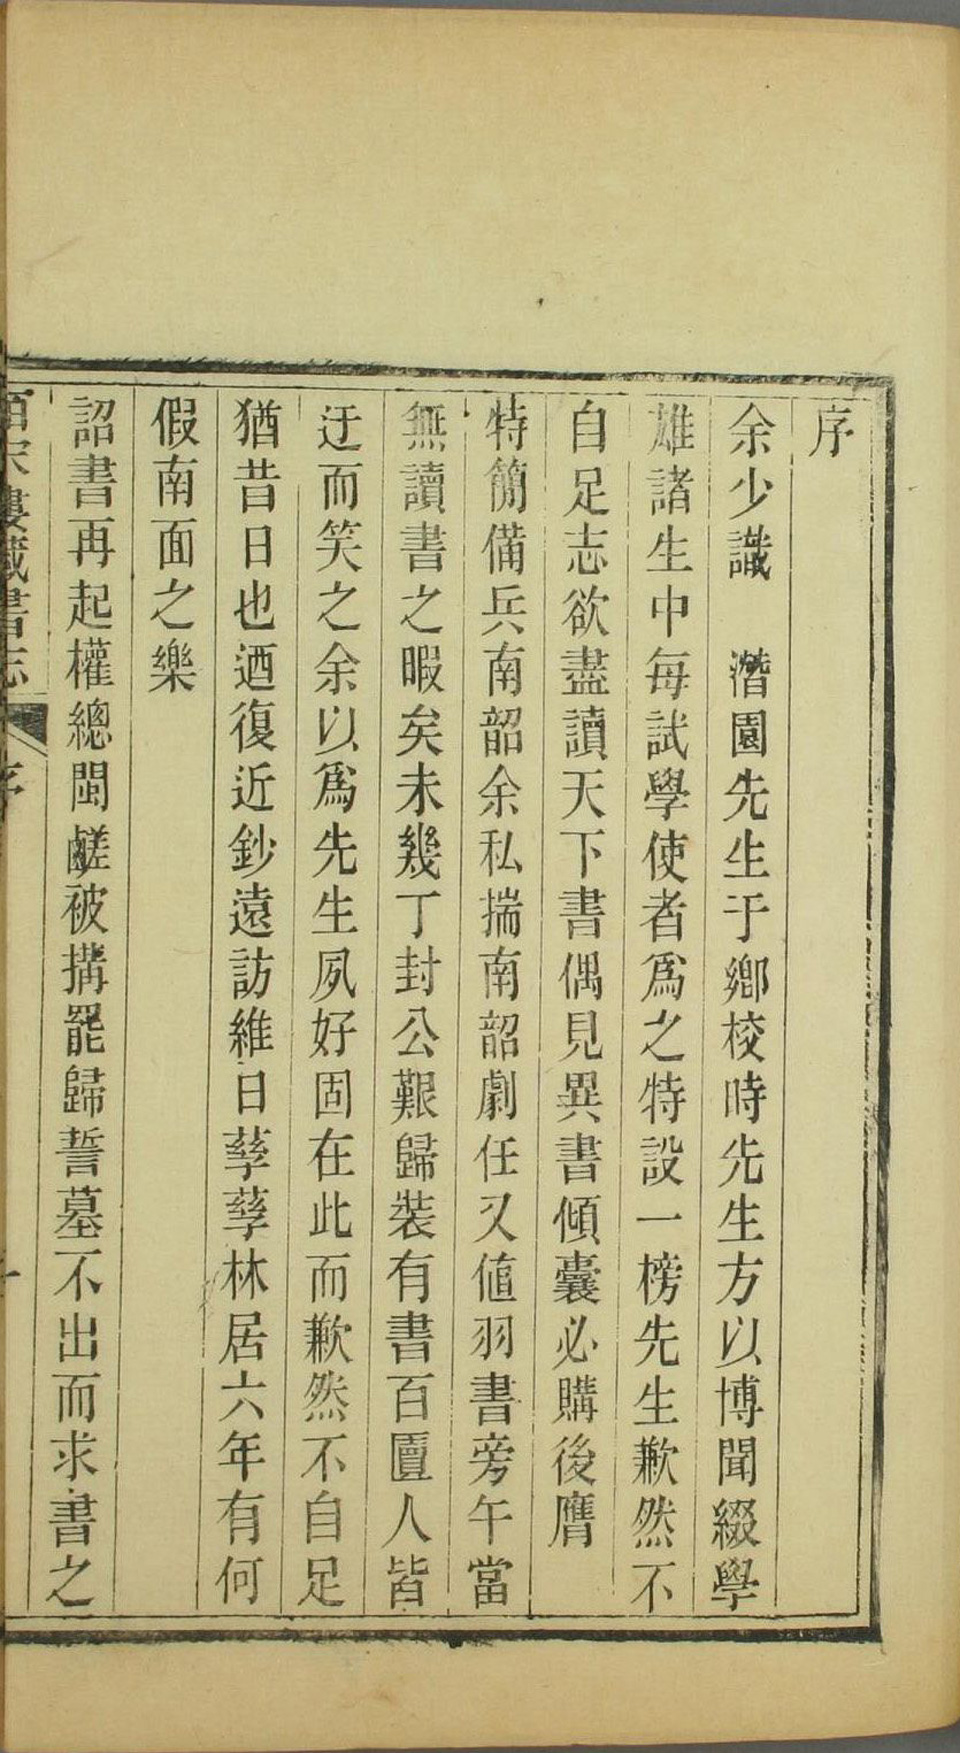 序
余少識　潛園先生于鄉校時先生方以博聞綴學
雄諸生中每試學使者爲之特設一榜先生歉然不
自足志欲盡讀天下書偶見異書傾囊必購後膺
特簡備兵南韶余私揣南韶劇任又値羽書旁午當
無讀書之暇矣未幾丁封公艱歸裝有書百匱人皆
迂而笑之余以爲先生夙好固在此而歉然不自足
猶昔日也迺復近鈔遠訪維日孳孳林居六年有何
假南面之樂
詔書再起權總閩鹺被搆罷歸誓墓不出而求書之
皕宋樓藏書志　序　一